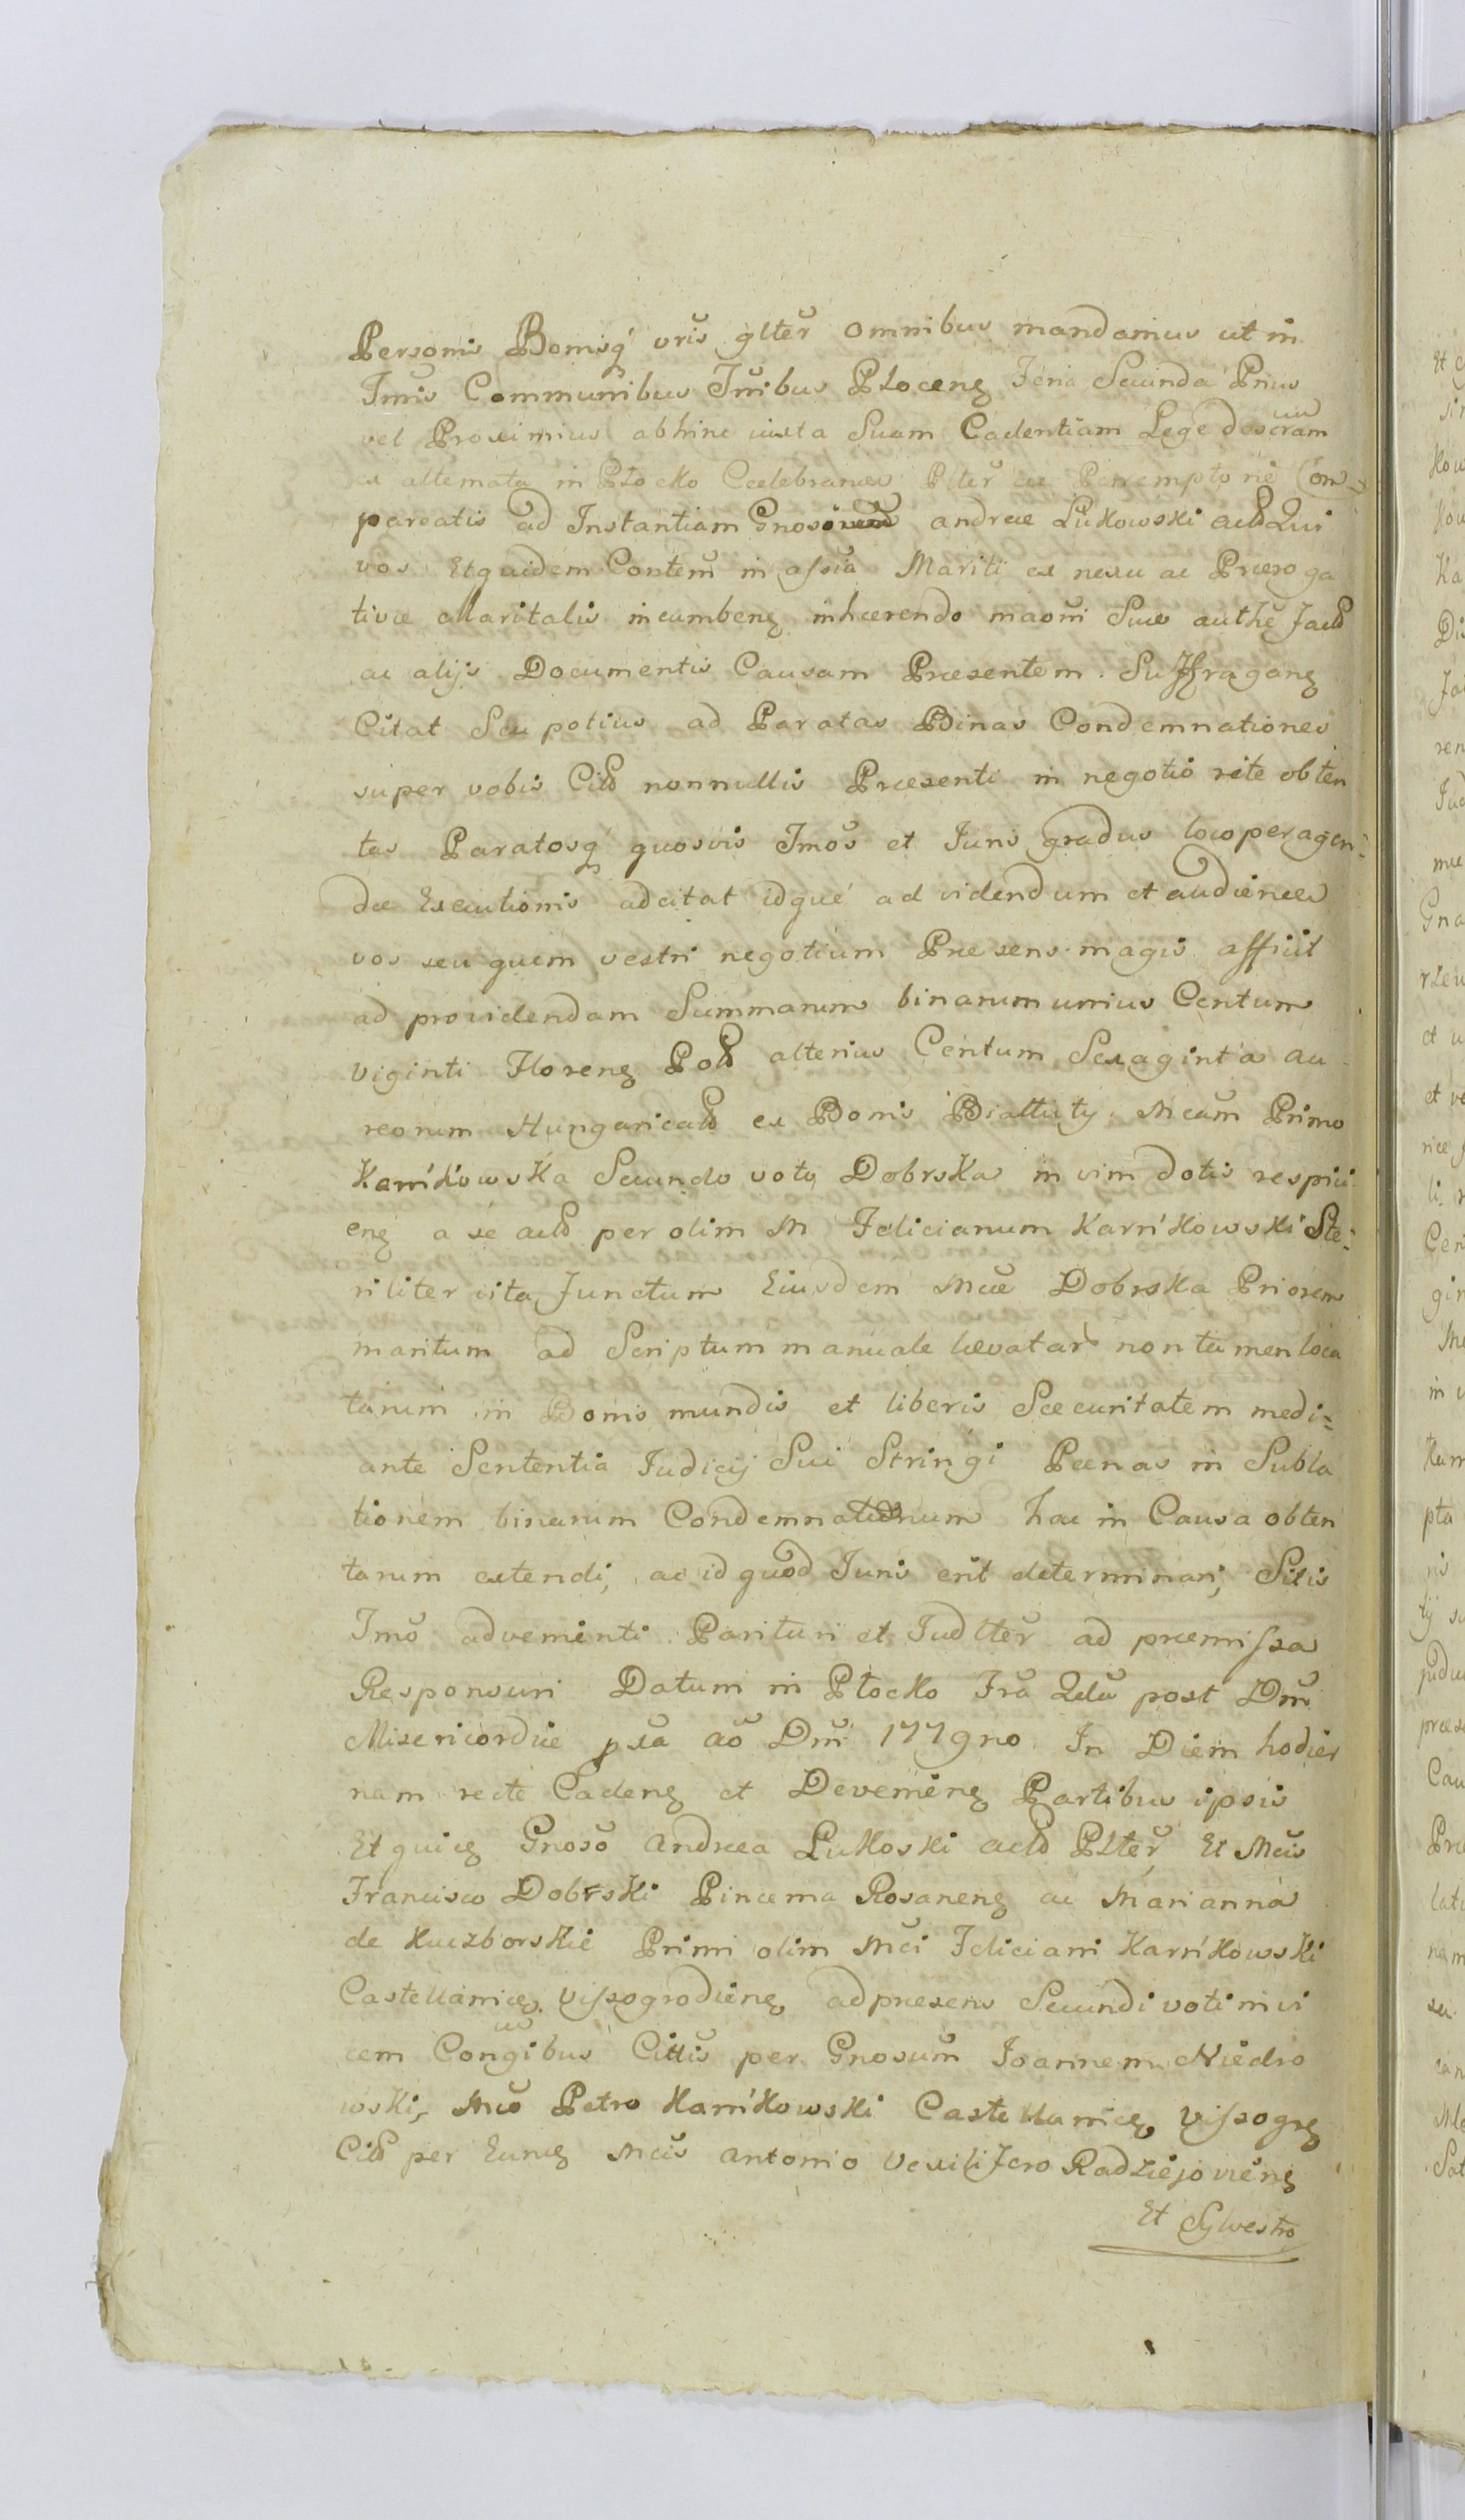 Personis Bonisq́ vris glter̃ omnibus mandamus ut in
Jmis Communibus Jm̃ibus Płoceng Feria Secunda Prius
vel Proximius abhinc iuxta Suam Cadentiam Lege descram
ex alternata in Płocko Caelebranes Plter̃ ac Peremptorie Com-
pareatis ad Instantiam Gnosi andreae Lukowski act Qui
vos Etquidem Contem̃ in assia Mariti ex nexu ac Praeroga
tivae Maritalis incumbeng inhaerendo maom̃ Suae authẽ fact
ac alijs Documentis Causam Praesentem Suffragang
Citat Seu potius ad Paratas Binas Condemnationes
super vobis Citt nonnullis Praesenti in negotio rite obten
tas Paratosq́ quosvis Jmõs et Juris gradus loco peragen-
dae Executionis adcitat idque ad videndum et audience
vos seu quem vestri negotium Praesens magis afficit
ad providendam Summarum binarum unius Centum
viginti Floreng Pol alterius Centum Sexaginta au
reorum Hungarical ex Bonis Białłuty Mcam̃ Primo
Karńkowska Secundo voto Dobrska in vim dotis respici
eng a se act per olim M Felicianum Karńkowski Ste-
riliter vita functum Eiusdem Mcae Dobrska Priorem
maritum ad Scriptum manuale levatar̃ non tamen loca
tarum in Bonis mundis et liberis Saecuritatem medi=
ante Sententia Judicij Sui Stringi Paenas in Subla
tionem binarum Condemnationum hac in Causa obten
tarum extendi, ac id quod Juris erit determinari, Sitis
Jmõ advenienti Parituri et Judltter̃ ad praemissa
Responsuri Datum in Płocko Frã 2dã post Dm̃
Misericordiae pxa aõ Dm̃ 1779no In Diem hodier
nam recte Cadeng et Deveniẽng Partibus ipsis
Et quidg Gnosõ Andrea Lukoski act Plter̃, Et Mcis
Francisco Dobrski Pincerna Rosaneng ac Marianna
de Kuczborskie Primi olim Mci Feliciani Karńkowski
Castellanicg vissogrodieng adpraesens Secundi voti invi
cem Congibus Cittis per Gnosum Joannem Niedro
wski, Mcõ Petro Karńkowski Castellanicg vissogrg
Citt per Eung Mcis Antonio Vexilifero Radziejovieng
Et Sylvestro